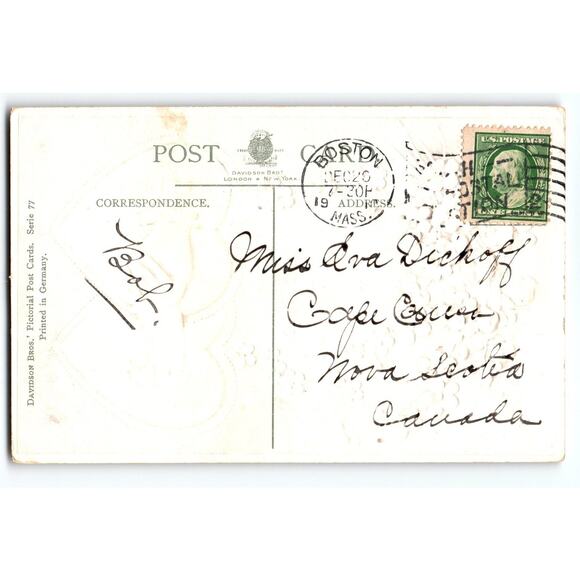 POST CARD
DAVIDSON BROS.
LONDON & NEW YORK
BOSTON
DEC 20
7-30P
19
MASS.
U.S. POSTAGE
CORRESPONDENCE.
ADDRESS.
Bob.
Miss Eva Dickoff
Cape Couso
Nova Scotia
Canada
DAVIDSON BROS.' Pictorial Post Cards. Serie 77
Printed in Germany.